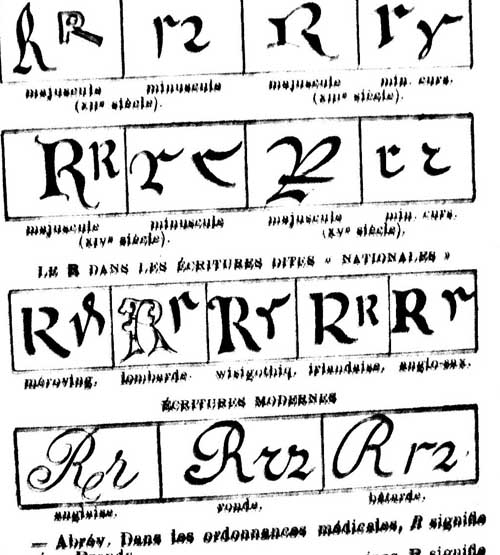 R R r 2 R r r
majuscule minuscule majuscule min. curs.
(XIIe siècle). (XIIIe siècle).
R R r r R r r
majuscule minuscule majuscule min. curs.
(XIVe siècle). (XVe siècle).
LE R DANS LES ÉCRITURES DITES « NATIONALES »
R r R r R r R R R r
méroving. lombarde. wisigothiq. irlandaise. anglo-sax.
ÉCRITURES MODERNES
R r r R r 2 R r 2
anglaise. ronde. bâtarde.
— Abrév. Dans les ordonnances médicales, R signifie
R signifie